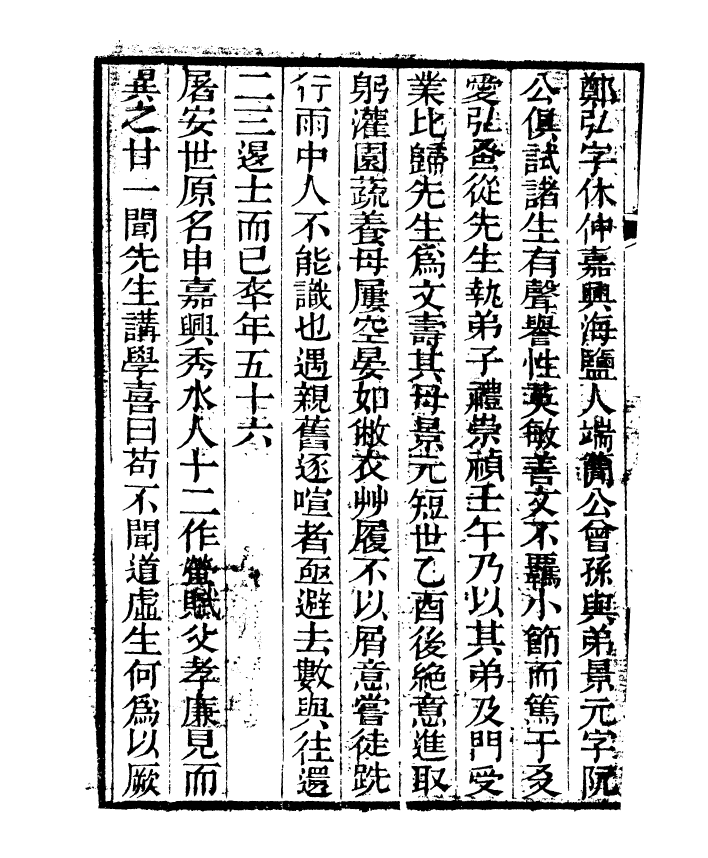 鄭弘字休仲嘉興海鹽人端簡公曾孫與弟景元字阮
公俱試諸生有聲譽性英敏善文不羈小節而篤于友
愛弘蚤從先生執弟子禮崇禎壬午乃以其弟及門受
業比歸先生爲文壽其母景元短世乙酉後絶意進取
躬灌園蔬養母屢空晏如敝衣艸履不以屑意嘗徒跣
行雨中人不能識也遇親舊逐喧者亟避去數與往還
二三遗士而已卒年五十六
屠安世原名申嘉興秀水人十二作螢賦父孝廉見而
異之廿一聞先生講學喜曰苟不聞道虛生何爲以厥